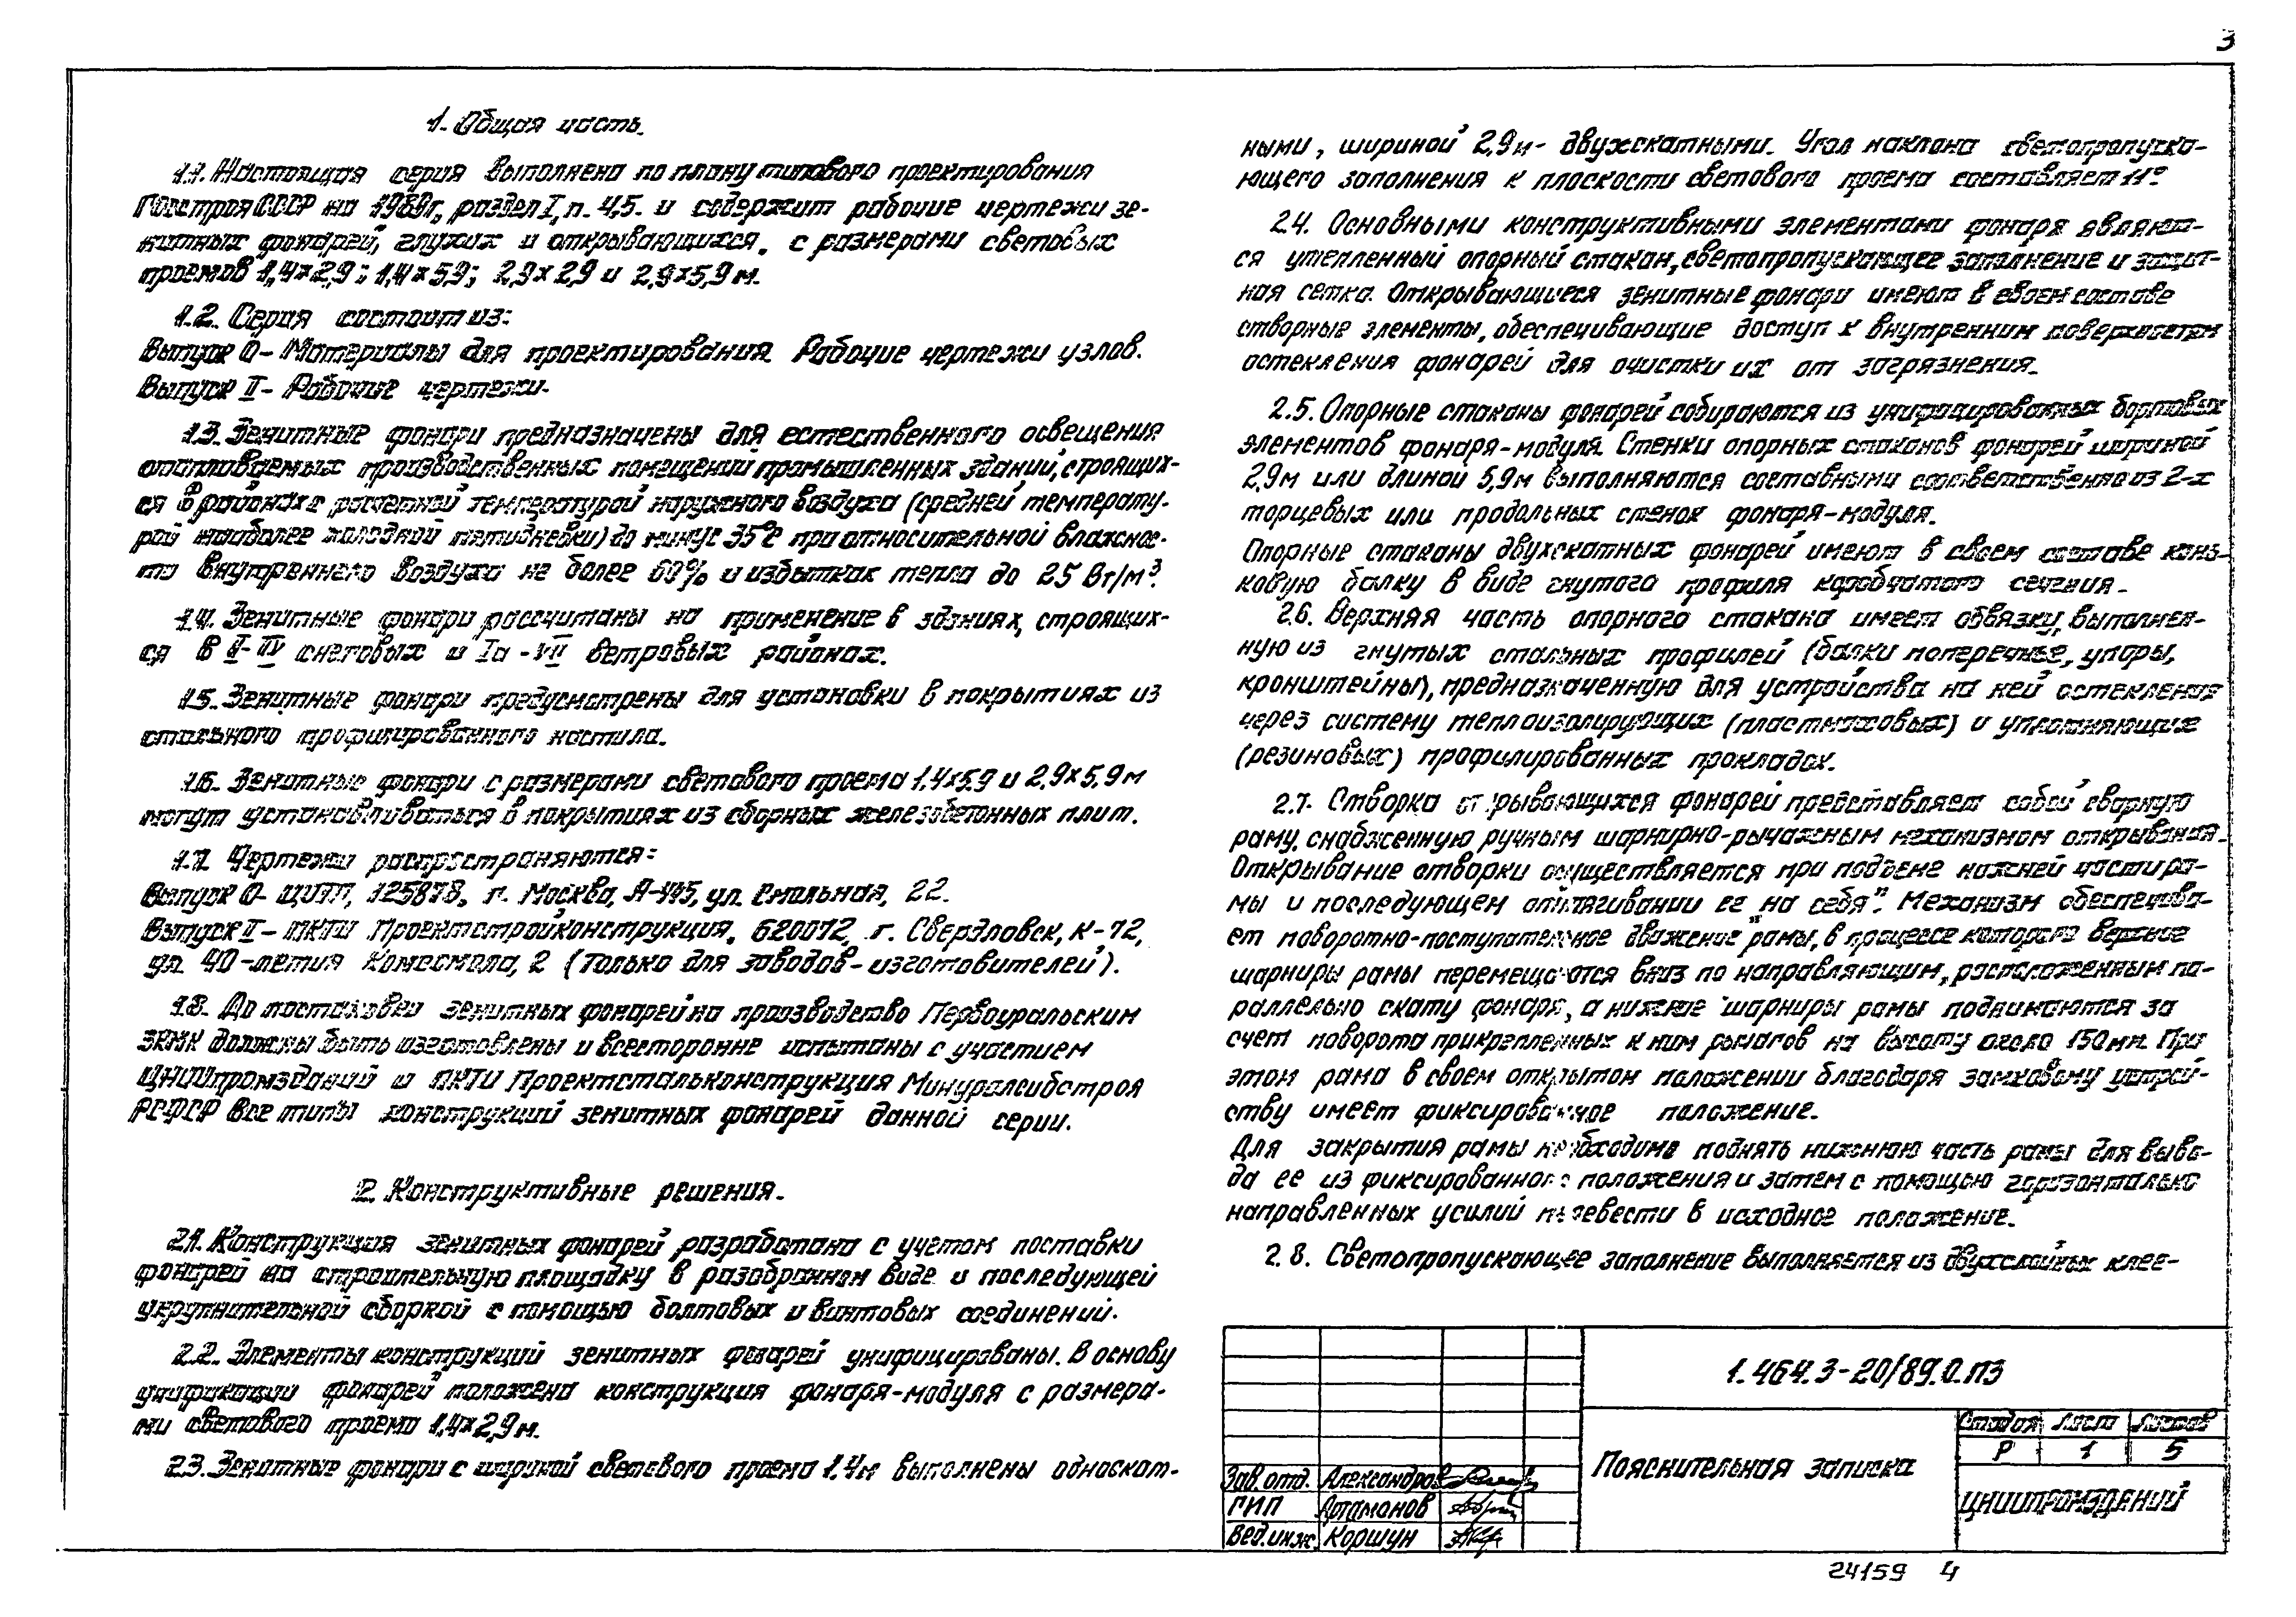 3
1. Общая часть.
1.1. Настоящая серия выполнена по плану типового проектирования
Госстроя СССР на 1989г, раздел I, п. 4,5. и содержит рабочие чертежи зе-
нитных фонарей, глухих и открывающихся, с размерами световых
проемов 1,4×2,9; 1,4×5,9; 2,9×2,9 и 2,9×5,9м.
1.2. Серия состоит из:
Выпуск 0- Материалы для проектирования. Рабочие чертежи узлов.
Выпуск II- Рабочие чертежи.
1.3. Зенитные фонари предназначены для естественного освещения
отапливаемых производственных помещений промышленных зданий, строящих-
ся в районах с расчетной температурой наружного воздуха (средней температу-
рой наиболее холодной пятидневки) до минус 35°С при относительной влажнос-
ти внутреннего воздуха не более 60% и избытках тепла до 25 Вт/м³.
1.4. Зенитные фонари рассчитаны на применение в зданиях, строящих-
ся в I-IV снеговых и Iа-VII ветровых районах.
1.5. Зенитные фонари предусмотрены для установки в покрытиях из
стального профилированного настила.
1.6. Зенитные фонари с размерами светового проема 1,4×5,9 и 2,9×5,9м
могут устанавливаться в покрытиях из сборных железобетонных плит.
1.7. Чертежи распространяются:
Выпуск 0- ЦИТП, 125878, г. Москва, А-445, ул. Смольная, 22.
Выпуск II- ПКТИ Проектстройконструкция, 620072, г. Свердловск, К-72,
ул. 40-летия Комсомола, 2 (только для заводов-изготовителей).
1.8. До постановки зенитных фонарей на производство Первоуральским
ЗКМК должны быть изготовлены и всесторонне испытаны с участием
ЦНИИпромзданий и ПКТИ Проектстальконструкция Минуралсибстроя
РСФСР все типы конструкций зенитных фонарей данной серии.
2. Конструктивные решения.
2.1. Конструкция зенитных фонарей разработана с учетом поставки
фонарей на строительную площадку в разобранном виде и последующей
укрупнительной сборкой с помощью болтовых и винтовых соединений.
2.2. Элементы конструкций зенитных фонарей унифицированы. В основу
унификации фонарей положена конструкция фонаря-модуля с размера-
ми светового проема 1,4×2,9м.
2.3. Зенитные фонари с шириной светового проема 1,4м выполнены односкат-
ными, шириной 2,9м- двухскатными. Угол наклона светопропуска-
ющего заполнения к плоскости светового проема составляет 11°
2.4. Основными конструктивными элементами фонаря являют-
ся утепленный опорный стакан, светопропускающее заполнение и защит-
ная сетка. Открывающиеся зенитные фонари имеют в своем составе
створные элементы, обеспечивающие доступ к внутренним поверхностям
остекления фонарей для очистки их от загрязнения.
2.5. Опорные стаканы фонарей собираются из унифицированных бортовых
элементов фонаря-модуля. Стенки опорных стаканов фонарей шириной
2,9м или длиной 5,9м выполняются составными соответственно из 2-х
торцевых или продольных стенок фонаря-модуля.
Опорные стаканы двухскатных фонарей имеют в своем составе конь-
ковую балку в виде гнутого профиля коробчатого сечения.
2.6. Верхняя часть опорного стакана имеет обвязку, выполнен-
ную из гнутых стальных профилей (балки поперечные, упоры,
кронштейны), предназначенную для устройства на ней остекления
через систему теплоизолирующих (пластмассовых) и уплотняющих
(резиновых) профилированных прокладок.
2.7. Створка открывающихся фонарей представляет собой сварную
раму, снабженную ручным шарнирно-рычажным механизмом открывания.
Открывание створки осуществляется при подъеме нижней части ра-
мы и последующем оттягивании ее „на себя". Механизм обеспечива-
ет поворотно-поступательное движение рамы, в процессе которого верхние
шарниры рамы перемещаются вниз по направляющим, расположенным па-
раллельно скату фонаря, а нижние шарниры рамы поднимаются за
счет поворота прикрепленных к ним рычагов на высоту около 150мм. При
этом рама в своем открытом положении благодаря замковому устрой-
ству имеет фиксированное положение.
Для закрытия рамы необходимо поднять нижнюю часть рамы для выво-
да ее из фиксированного положения и затем с помощью горизонтально
направленных усилий перевести в исходное положение.
2.8. Светопропускающее заполнение выполняется из двухслойных клее-
1.464.3-20/89.0.ПЗ
Пояснительная записка
Стадия Лист Листов
Р 1 5
ЦНИИПРОМЗДАНИЙ
Зав. отд. Александров
ГИП Артамонов
Вед. инж. Коршун
24159 4